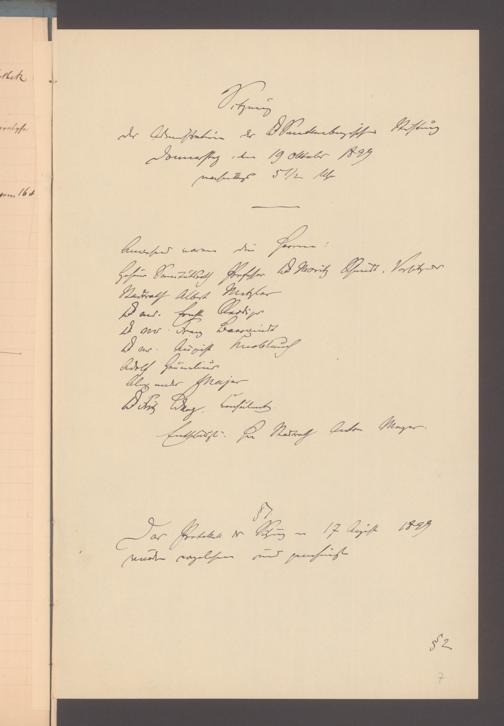 Sitzung
der Administration der Dr Senckenbergischen Stiftung
Donnerstag, den 19 Oktober 1899
nachmittags 5 1/2 Uhr
Anwesend waren die Herren:
Geheim Sanitätsrath Professor Dr Moritz Schmidt, Vorsitzender
Stadtrath Albert Metzler
Dr med. Ernst
Dr med. Franz
Dr med. August Knoblauch
Adolf
Alexander Majer
Dr Fritz Berg, Consulent
Entschuldigt: Herr Stadtrath Anton Meyer.
§ 1
Das Protokoll der Sitzung vom 17 August 1899
wurde vorgelesen und genehmigt
§ 2
7